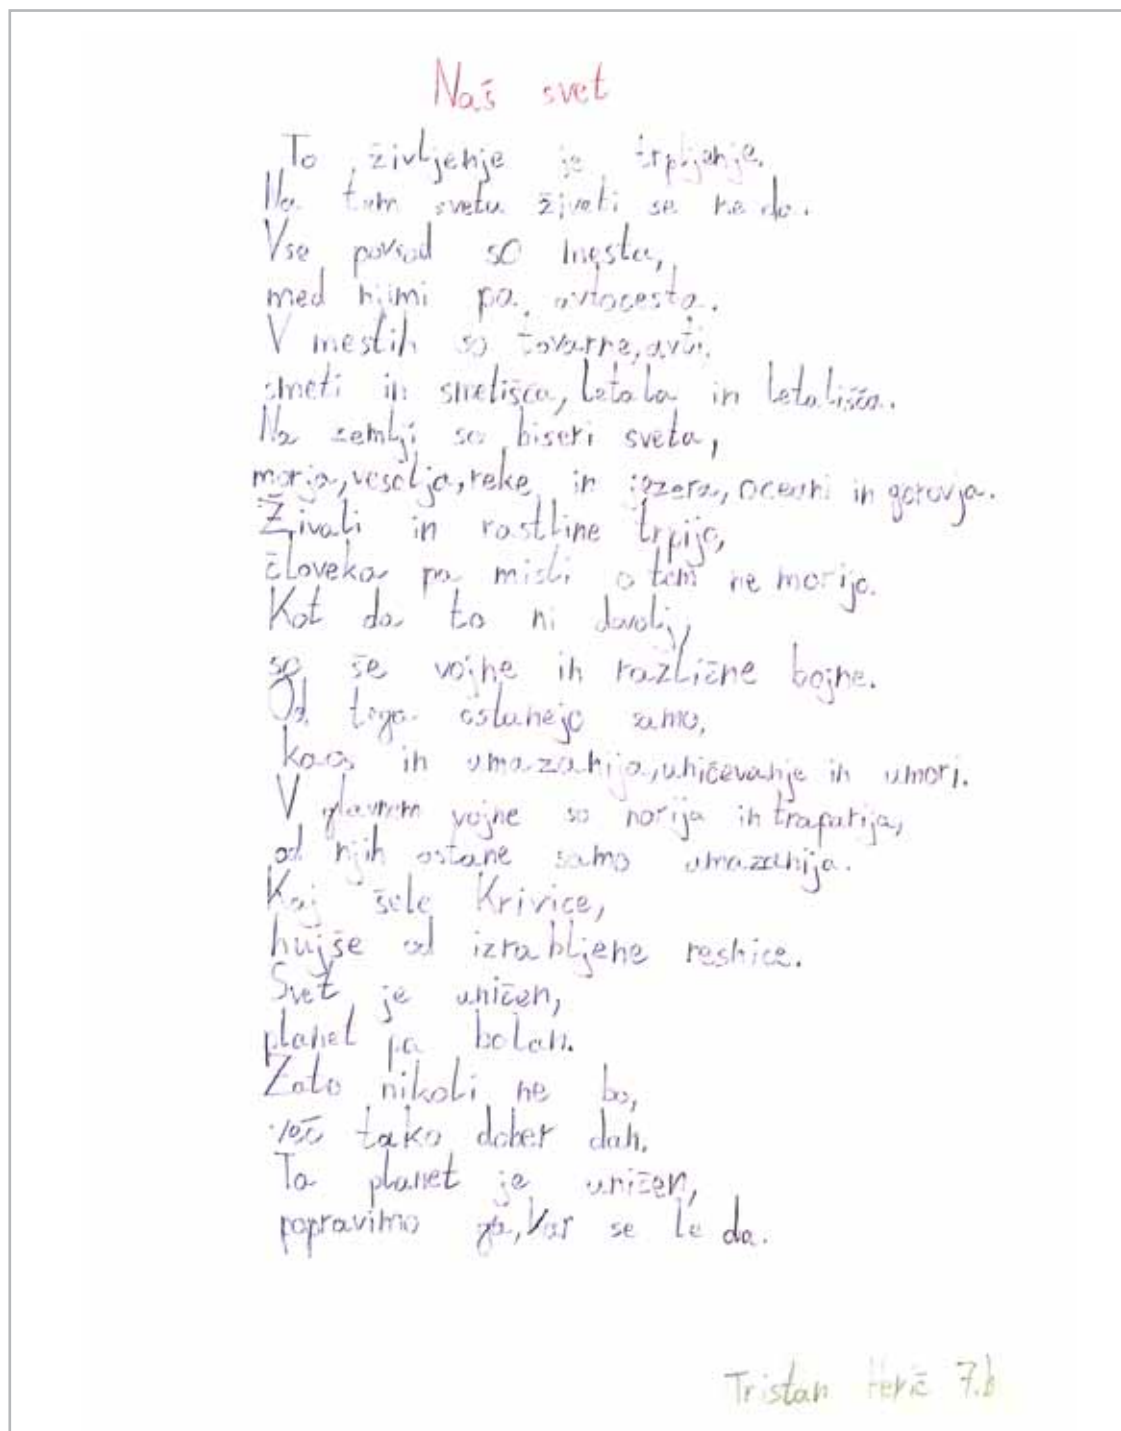 Naš svet
To življenje je trpljenje.
Na tem svetu živeti se ne da.
Vse povsod so mesta,
med njimi pa avtocesta.
V mestih so tovarne, avti,
smeti in smetišča, letala in letališča.
Na zemlji so biseri sveta,
morja, vesolja, reke in jezera, oceani in gorovja.
Živali in rastline trpijo,
človeka pa misli o tem ne morijo.
Kot da to ni dovolj,
so še vojne in različne bojne.
Od tega ostanejo samo,
kaos in umazanija, uničevanje in umori.
V glavnem vojne so norija in traparija,
od njih ostane samo umazanija.
Kaj šele krivice,
hujše od izrabljene resnice.
Svet je uničen,
planet pa bolan.
Zato nikoli ne bo,
več tako dober dan.
Ta planet je uničen,
popravimo ga, kar se le da.
Tristan Herič 7.b